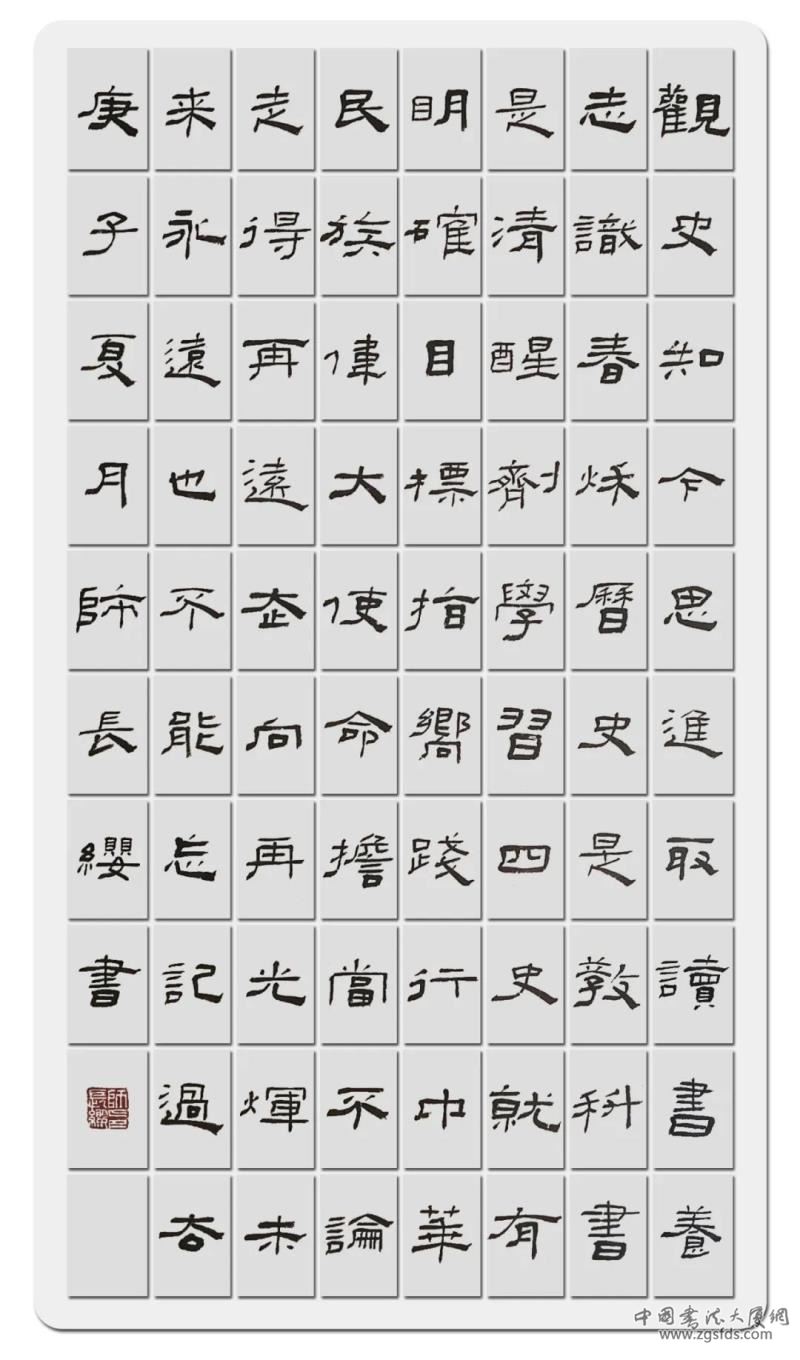 觀史知今思進取讀書養
志識春秋曆史是教科書
是清醒劑學習四史就有
明確目標指嚮踐行中華
民族偉大使命擔當不論
走得再遠走向再光輝未
来永遠也不能忘記過去
庚子夏月師長纓書
師長纓印
中國書法大厦網
www.zgsfds.com